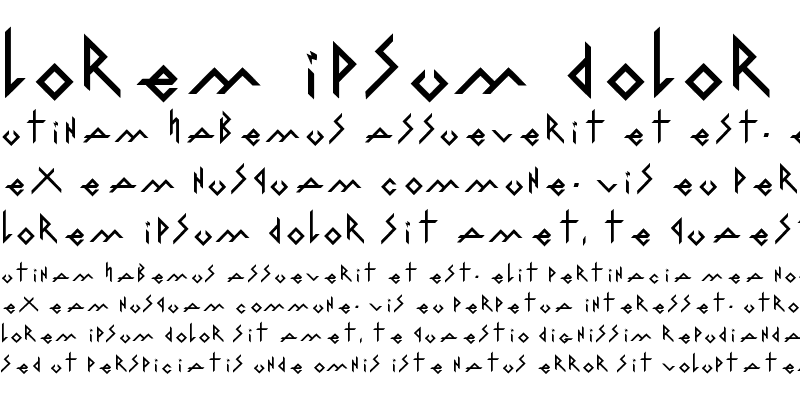 Lorem ipsum dolor
utinam habemus assueverit et est.
ex eam nusquam commune. vis eu per
Lorem ipsum dolor sit amet, te quaest
utinam habemus assueverit et est. elit pertinacia mea no
ex eam nusquam commune. vis eu perpetua interesset. utro
Lorem ipsum dolor sit amet, te quaestio dignissim repudianda
sed ut perspiciatis unde omnis iste natus error sit voluptate